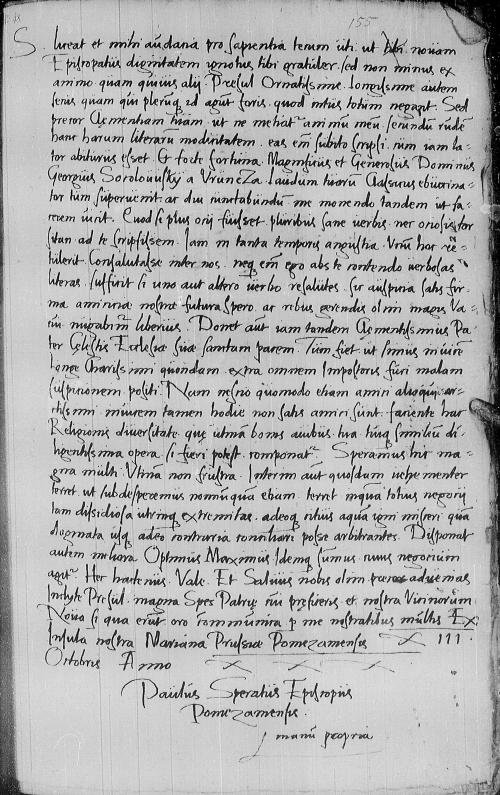 155
S. liceat et mihi audacia pro sapientia rerum uti. ut tibi novam
Episcopatus dignitatem ignotus tibi gratuler. sed non minus ex
animo quam quivis alij. Presul Ornatissime. longissime autem
secus quam qui plerumq id agut foris. quod intus totum negant. Sed
precor Clementiam tuam. ut ne metiat animu meu secundu rude
hanc harum literaru modicitatem. eas em subito scripsi. cum iam la-
tor abiturus esset. Et forte fortuna Magnificus et Generosus Dominus
Georgius Sokolowskij a Wrüncza laudum tuaru Classicus ebuccina-
tor tum superuenit. ac diu cunctabundu me monendo tandem ut fa-
cerem vicit. Quod si plus ocij fuisset pluribus sane verbis nec ociosis for
sitan ad te scripsissem. Iam in tanta temporis angustia. Vnu hoc re-
tulerit Consalutasse inter nos. neq em ego abs te contendo verbosas
literas. sufficit si uno aut altero verbo resalutes. sic auspicia satis fir-
ma amicicie nostre futura spero. ac rebus gerendis olim magis Va-
cui nugabimr liberius. Donet aut iam tandem Clementissimus Pa-
ter Celestis Ecclesie sue sanctam pacem. Tum fiet ut simus invicem
longe Charissimi quondam extra omnem Impostoris furi malam
suspicionem positi. Nam nescio quomodo etiam amici alioqui ar-
ctissimi invicem tamen hodie non satis amici sunt. faciente hac
Religionis diversitate. que utinam bonis avibus. tua tuiq similiu di-
ligentissima opera. si fieri potest. componat. Speramus hic ma-
gna multi. Vtina non frustra. Interim aut quosdam vehementer
terret. ut subdesperemus nonnunqua etiam. terret inqua totius negocij
tam dissidiosa utrinq extremitas. adeoq citius aqua igni misceri qua
dogmata usq adeo contraria conciliari posse arbitrantes. Disponat
autem meliora Optimus Maximus. Idemq summus. cuius negocium
agit. Hec hactenus. Vale. Et Saluus nobis olim aduenias
Inclyte Presul. magna Spes Patrie cui preficeris et nostra Vicinorum
Noua si qua erut oro communica p me nostratibus multis Ex
Insula nostra Mariana Prussie Pomezaniensis X III
Octobris Anno
Paulus Speratus Episcopus
Pomezaniensis.
manu propria